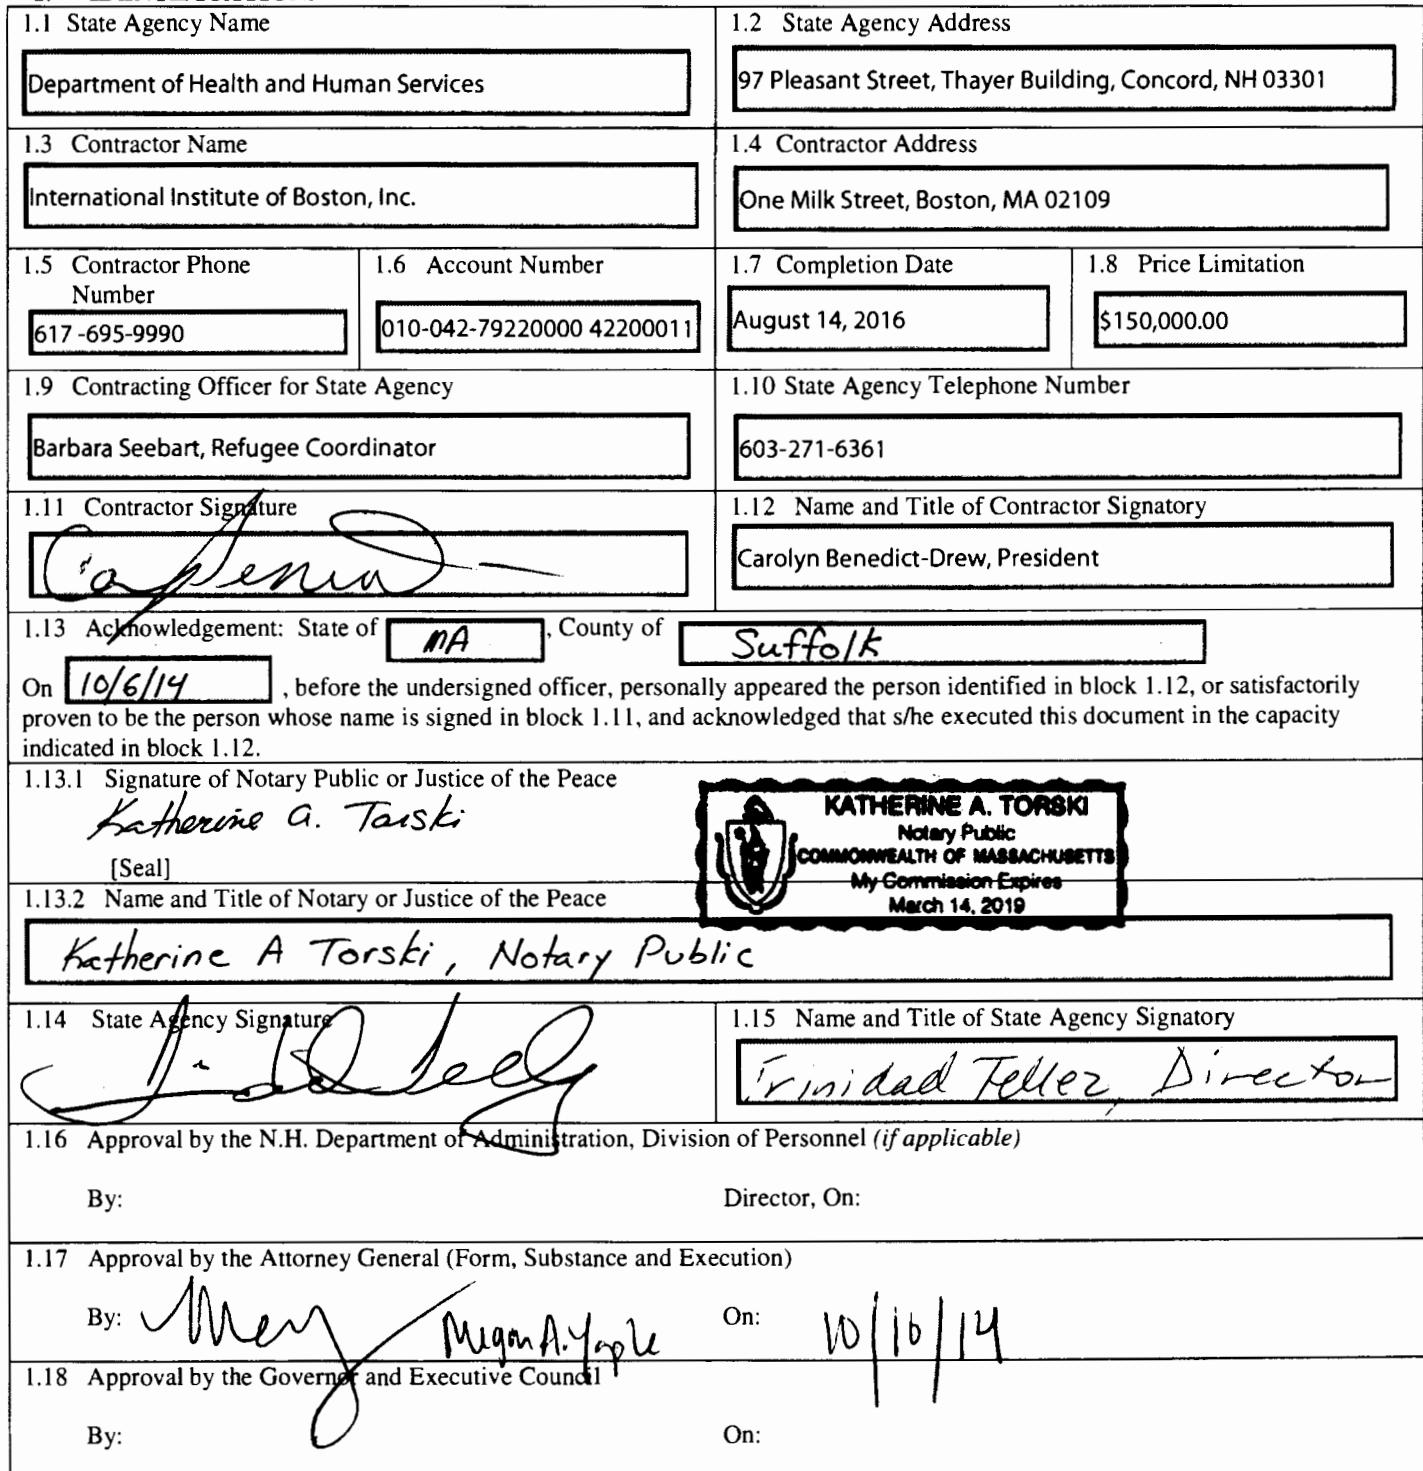 1.1 State Agency Name
Department of Health and Human Services
1.2 State Agency Address
97 Pleasant Street, Thayer Building, Concord, NH 03301
1.3 Contractor Name
International Institute of Boston, Inc.
1.4 Contractor Address
One Milk Street, Boston, MA 02109
1.5 Contractor Phone
Number
617 -695-9990
1.6 Account Number
010-042-79220000 42200011
1.7 Completion Date
August 14, 2016
1.8 Price Limitation
$150,000.00
1.9 Contracting Officer for State Agency
Barbara Seebart, Refugee Coordinator
1.10 State Agency Telephone Number
603-271-6361
1.11 Contractor Signature
1.12 Name and Title of Contractor Signatory
Carolyn Benedict-Drew, President
1.13 Acknowledgement: State of MA, County of Suffolk
On 10/6/14, before the undersigned officer, personally appeared the person identified in block 1.12, or satisfactorily
proven to be the person whose name is signed in block 1.11, and acknowledged that s/he executed this document in the capacity
indicated in block 1.12.
1.13.1 Signature of Notary Public or Justice of the Peace
Katherine A. Torski
[Seal]
KATHERINE A. TORSKI
Notary Public
COMMONWEALTH OF MASSACHUSETTS
My Commission Expires
March 14, 2019
1.13.2 Name and Title of Notary or Justice of the Peace
Katherine A Torski, Notary Public
1.14 State Agency Signature
1.15 Name and Title of State Agency Signatory
Trinidad Tellez, Director
1.16 Approval by the N.H. Department of Administration, Division of Personnel (if applicable)
By:
Director, On:
1.17 Approval by the Attorney General (Form, Substance and Execution)
By: Megan A. Yaple
On: 10/16/14
1.18 Approval by the Governor and Executive Council
By:
On: